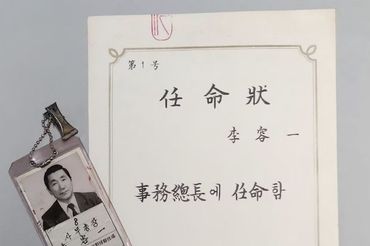 第1号
任命狀
李容一
事務總長에 任命함